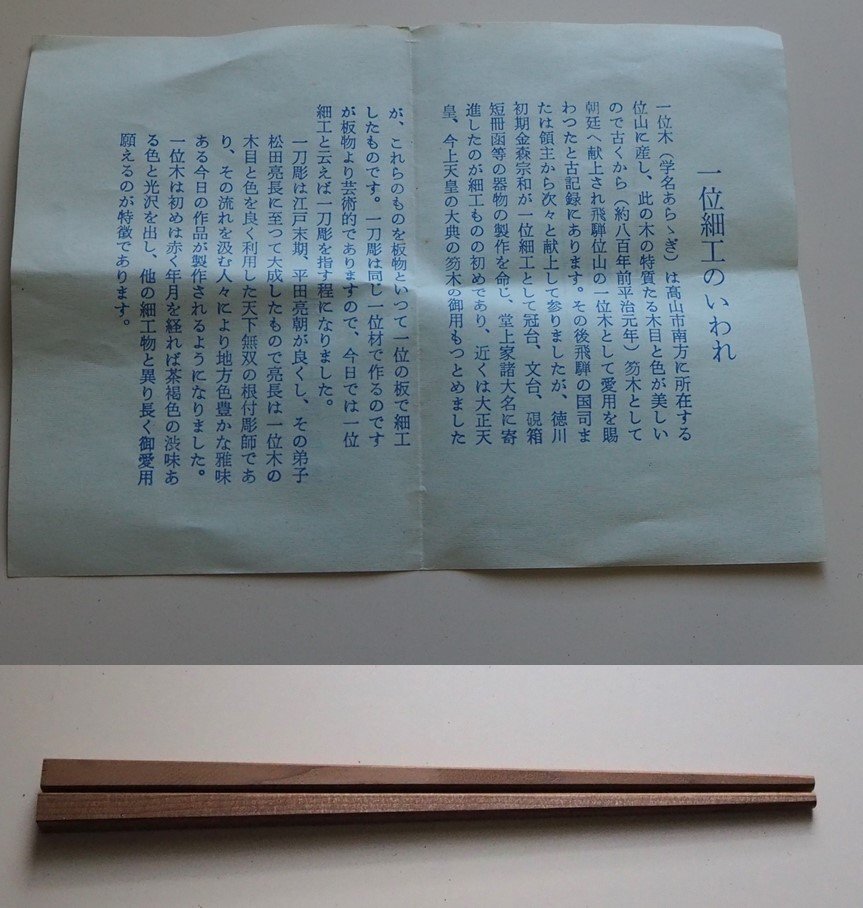 一位細工のいわれ
一位木（学名あらゝぎ）は高山市南方に所在する
位山に産し、此の木の特質たる木目と色が美しい
ので古くから（約八百年前平治元年）笏木として
朝廷へ献上され飛驒位山の一位木として愛用を賜
わつたと古記録にあります。その後飛驒の国司ま
たは領主から次々と献上して参りましたが、徳川
初期金森宗和が一位細工として冠台、文台、硯箱
短冊函等の器物の製作を命じ、堂上家諸大名に寄
進したのが細工ものの初めであり、近くは大正天
皇、今上天皇の大典の笏木の御用もつとめました
が、これらのものを板物といつて一位の板で細工
したものです。一刀彫は同じ一位材で作るのです
が板物より芸術的でありますので、今日では一位
細工と云えば一刀彫を指す程になりました。
一刀彫は江戸末期、平田亮朝が良くし、その弟子
松田亮長に至つて大成したもので亮長は一位木の
木目と色を良く利用した天下無双の根付彫師であ
り、その流れを汲む人々により地方色豊かな雅味
ある今日の作品が製作されるようになりました。
一位木は初めは赤く年月を経れば茶褐色の渋味あ
る色と光沢を出し、他の細工物と異り長く御愛用
願えるのが特徴であります。